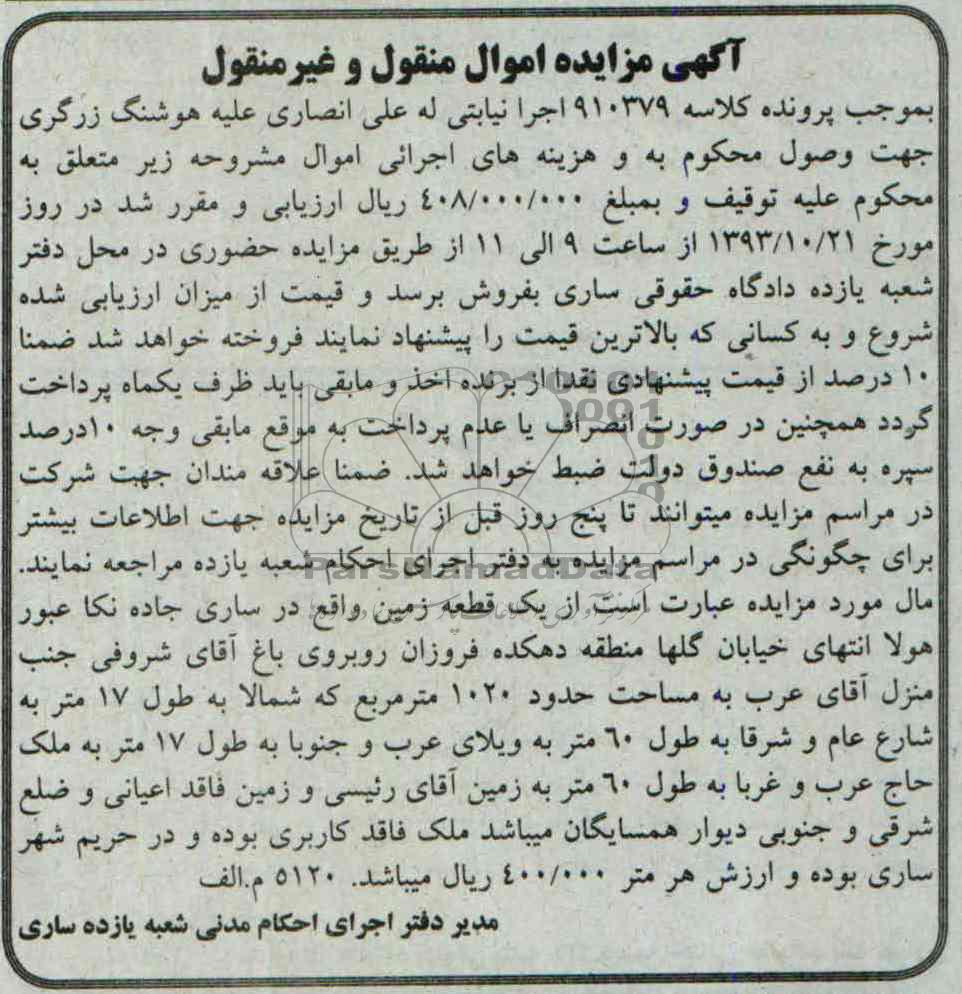 آگهی مزایده اموال منقول و غیرمنقول
بموجب پرونده کلاسه ۹۱۰۳۷۹ اجرا نیابتی له علی انصاری علیه هوشنگ زرگری
جهت وصول محکوم به و هزینه های اجرائی اموال مشروحه زیر متعلق به
محکوم علیه توقیف و بمبلغ ۴۰۸/۰۰۰/۰۰۰ ریال ارزیابی و مقرر شد در روز
مورخ ۱۳۹۳/۱۰/۲۱ از ساعت ۹ الی ۱۱ از طریق مزایده حضوری در محل دفتر
شعبه یازده دادگاه حقوقی ساری بفروش برسد و قیمت از میزان ارزیابی شده
شروع و به کسانی که بالاترین قیمت را پیشنهاد نمایند فروخته خواهد شد ضمنا
۱۰ درصد از قیمت پیشنهادی نقدا از برنده اخذ و مابقی باید ظرف یکماه پرداخت
گردد همچنین در صورت انصراف یا عدم پرداخت به موقع مابقی وجه ۱۰درصد
سپره به نفع صندوق دولت ضبط خواهد شد. ضمنا علاقه مندان جهت شرکت
در مراسم مزایده میتوانند تا پنج روز قبل از تاریخ مزایده جهت اطلاعات بیشتر
برای چگونگی در مراسم مزایده به دفتر اجرای احکام شعبه یازده مراجعه نمایند.
ParsNamadData
مال مورد مزایده عبارت است از یک قطعه زمین واقع در ساری جاده نکا عبور
هولا انتهای خیابان گلها منطقه دهکده فروزان روبروی باغ آقای شروفی جنب
منزل آقای عرب به مساحت حدود ۱۰۲۰ مترمربع که شمالا به طول ۱۷ متر به
شارع عام و شرقا به طول ۶۰ متر به ویلای عرب و جنوبا به طول ۱۷ متر به ملک
حاج عرب و غربا به طول ۶۰ متر به زمین آقای رئیسی و زمین فاقد اعیانی و ضلع
شرقی و جنوبی دیوار همسایگان میباشد ملک فاقد کاربری بوده و در حریم شهر
ساری بوده و ارزش هر متر ۴۰۰/۰۰۰ ریال میباشد. ۵۱۲۰ م.الف
مدیر دفتر اجرای احکام مدنی شعبه یازده ساری